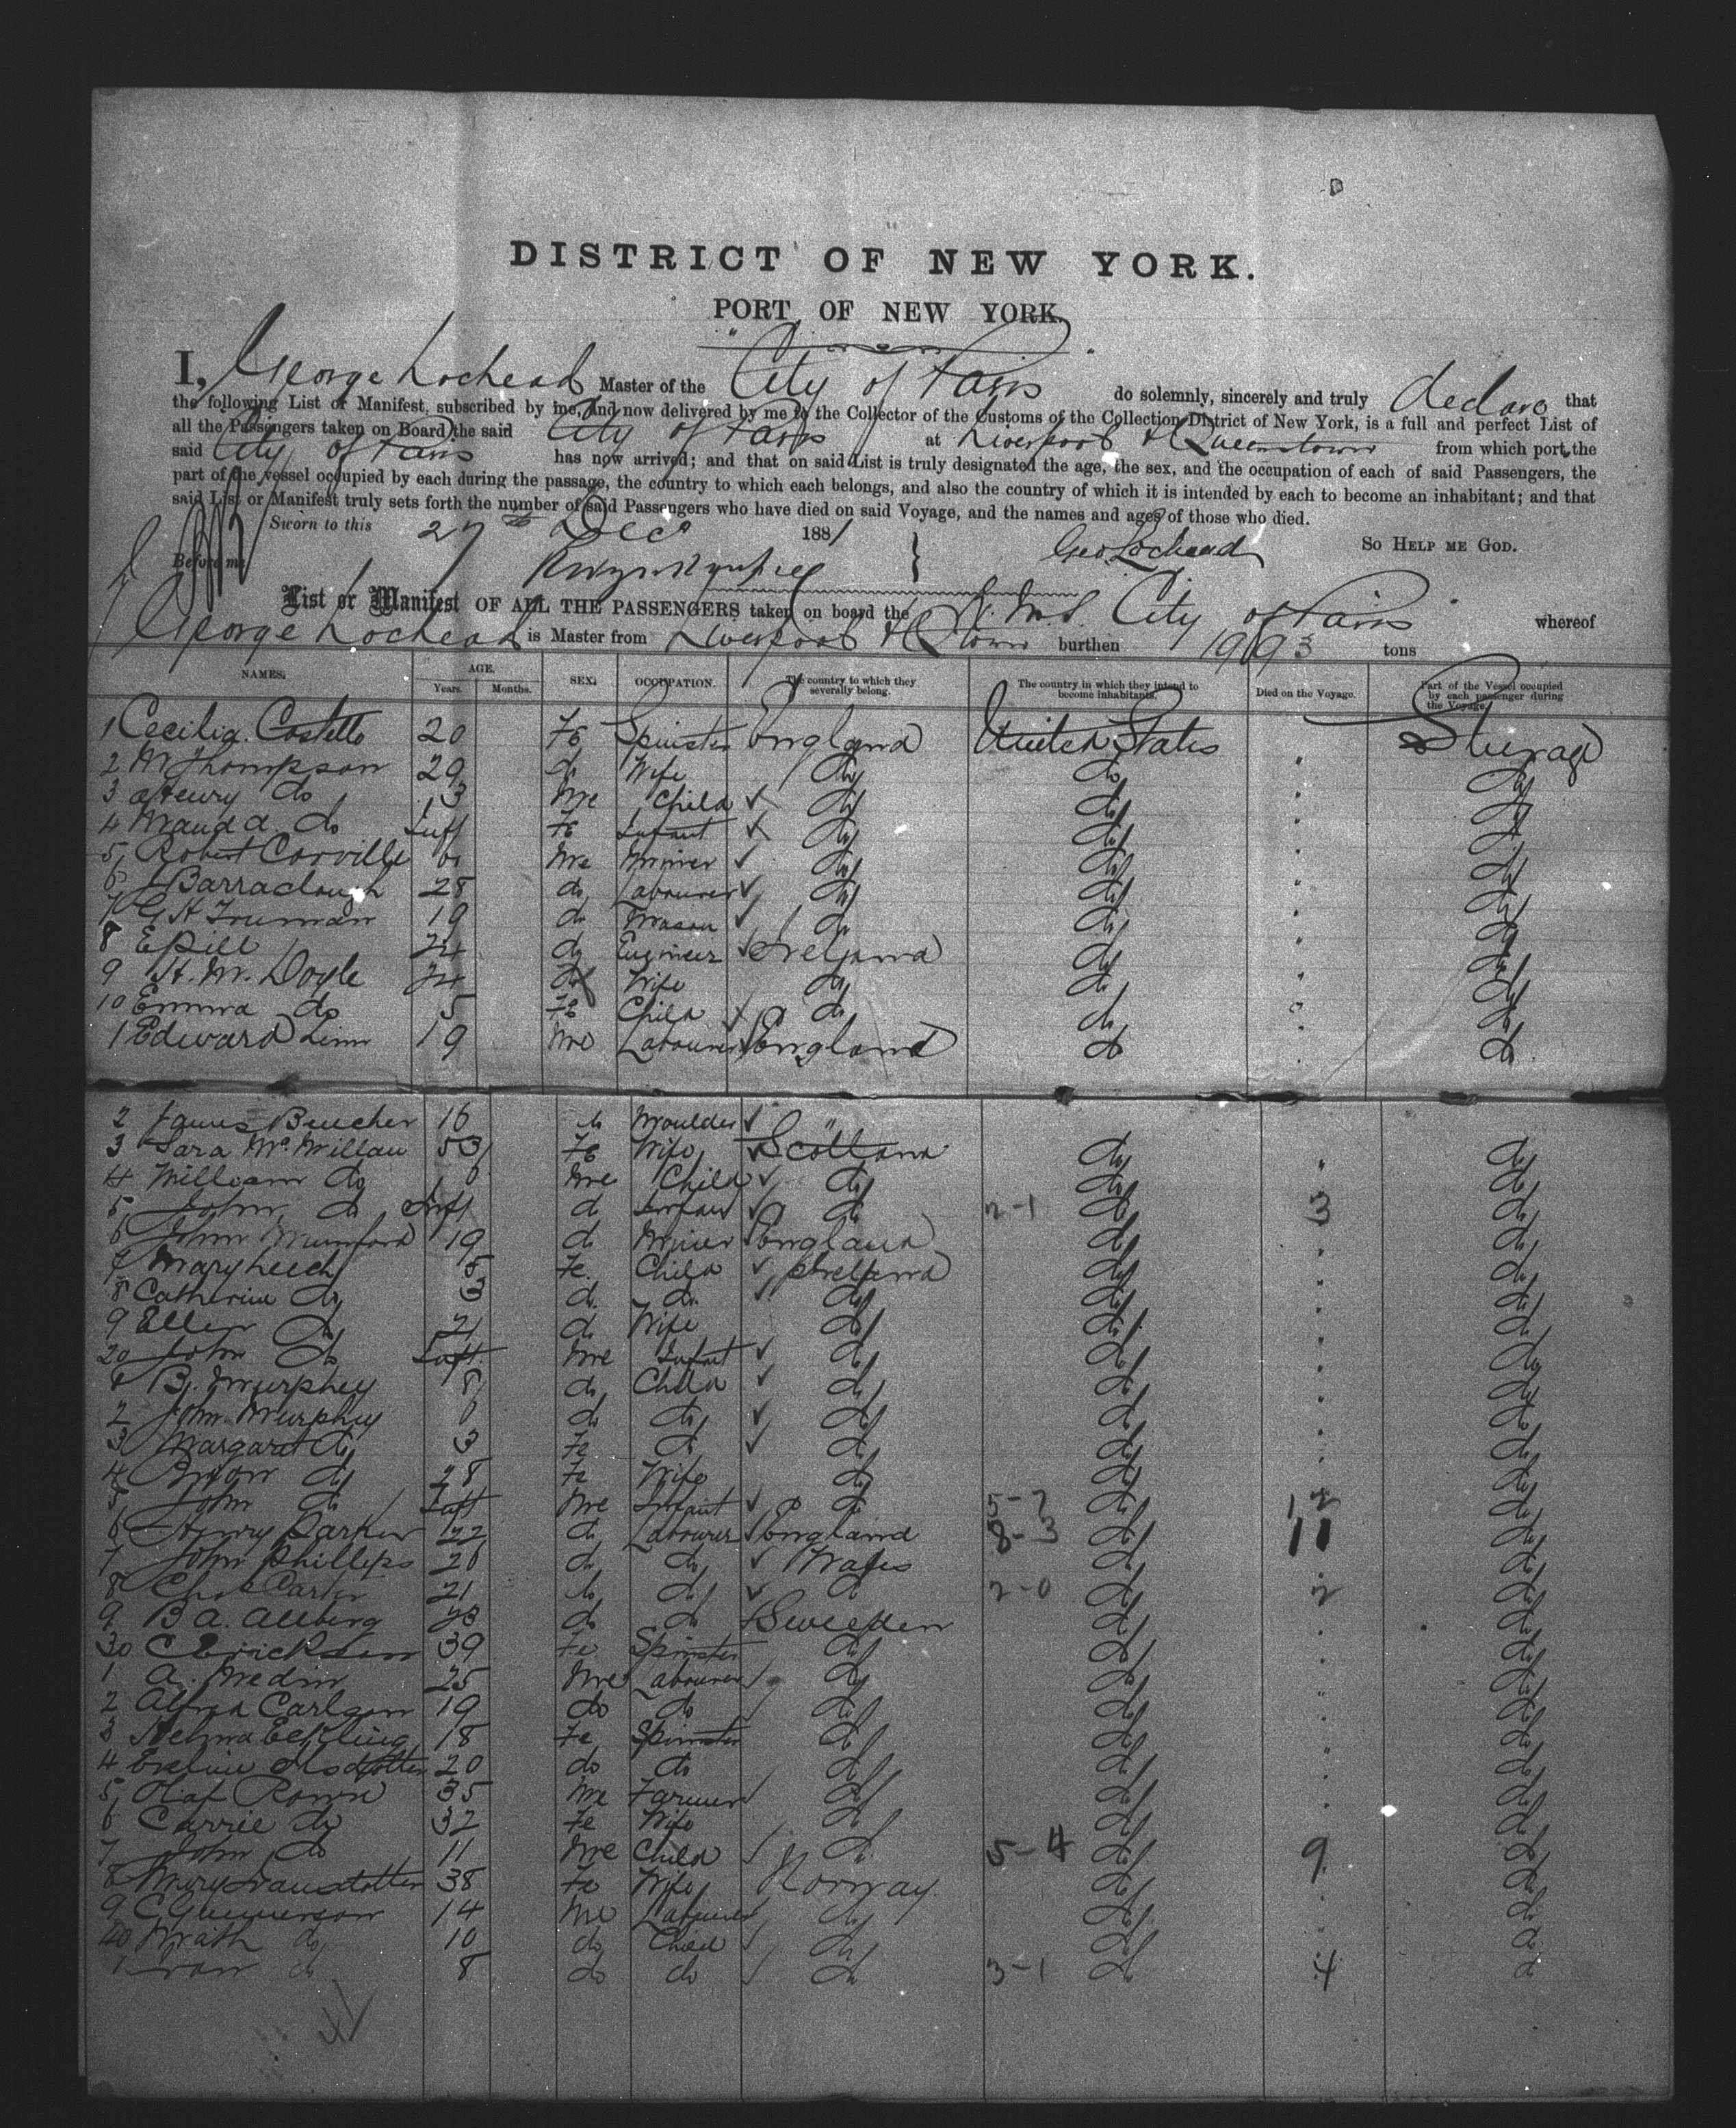 DISTRICT OF NEW YORK.
PORT OF NEW YORK.
I, George Lochead Master of the "City of Paris" do solemnly, sincerely and truly declare that
the following List or Manifest, subscribed by me, and now delivered by me to the Collector of the Customs of the Collection District of New York, is a full and perfect List of
all the Passengers taken on Board the said City of Paris at Liverpool & Queenstown from which port the
said City of Paris has now arrived; and that on said List is truly designated the age, the sex, and the occupation of each of said Passengers, the
part of the vessel occupied by each during the passage, the country to which each belongs, and also the country of which it is intended by each to become an inhabitant; and that
said List or Manifest truly sets forth the number of said Passengers who have died on said Voyage, and the names and ages of those who died.
Sworn to this 27th Dec 1881 Geo Lochead SO HELP ME GOD.
Before me
List or Manifest OF ALL THE PASSENGERS taken on board the City of Paris whereof
George Lochead is Master from Liverpool & Qtown burthen tons
NAMES. AGE. Years. Months. SEX. OCCUPATION. The country to which they severally belong. The country in which they intend to become inhabitants. Died on the Voyage. Part of the Vessel occupied by each passenger during the Voyage.
1 Cecilia Costello 20 Fe Spinster England United States " Steerage
2 M Thompson 29 do Wife do do " do
3 Henry do 3 Me Child do do " do
4 Maud A. do Inft Fe Infant do do do
5 Robert Me Miner do do " do
6 J Barraclough 28 do Labourer do do " do
7 G H Truman 19 do Mason do do " do
8 E Pill 24 do Engineer Ireland do " do
9 H. M. Doyle 24 do Wife do do " do
10 Emma do 5 Fe Child do do " do
1 Edward Linn 19 Me Labourer England do do
2 James 16 do Moulder "
3 Sara McMillan 53 Fe Wife Scotland do " do
4 William do Me Child do do do
5 John do Inft do Infant do 2-1 do 3 do
6 John Mumford 19 do Miner England do " do
7 Mary Leech 5 Fe. Child Ireland do " do
8 Catherine do 3 do do do do " do
9 Ellen do do Wife do do " do
20 John do Inft Me Infant do do " do
1 B. Murphy 8 do Child do do " do
2 John Murphy do do do do " do
3 Margaret do 3 Fe do do do do
4 do 28 Fe Wife do do do
5 John do Inft Me Infant do do 12 do
6 Henry Parker 22 do Labourer England 8-3 do 11 do
7 John Phillips 20 do do Wales do do
8 Chas Carter 21 do do do 2-0 do 2 do
9 B A. Allberg 23 do do Sweeden do do
30 C Erickson 39 Fe Spinster do do do
1 A. Medin 25 Me Labourer do do do
2 Alfred Carlson 19 do do do do " do
3 18 Fe Spinster do do do
4 20 do do do do " do
5 Olaf 35 Me Farmer do do do
6 Carrie do 32 Fe Wife do do do
7 John do 11 Me Child do 5-4 do 9 do
8 Mary 38 Fe Wife Norway do do
9 C Gunnerson 14 Me Labourer do do " do
40 do 10 do Child do do do
1 do 8 do do do 3-1 do 4 do